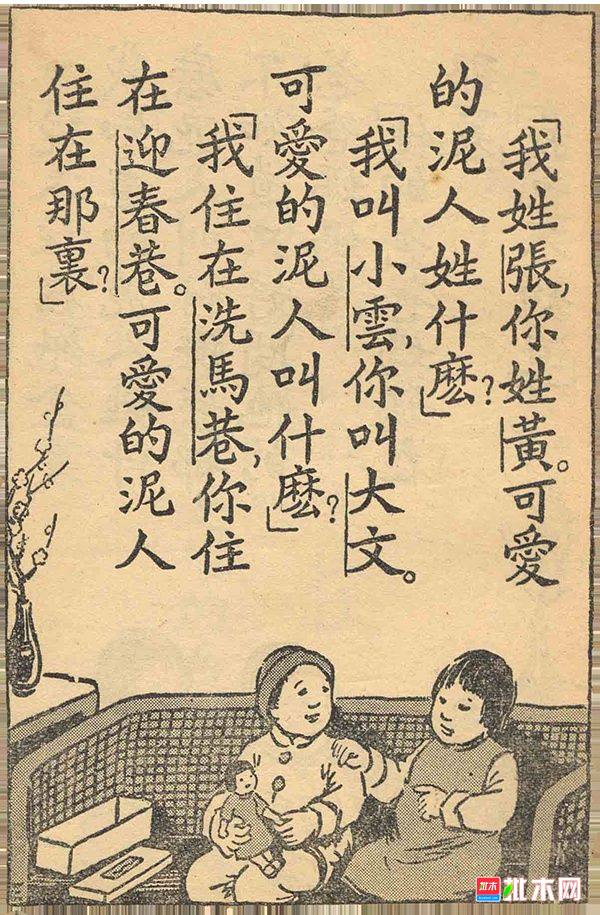 「我姓張，你姓黃。可愛
的泥人姓什麽？」
「我叫小雲，你叫大文。
可愛的泥人叫什麽？」
「我住在洗馬巷，你住
在迎春巷。可愛的泥人
住在那裏？」
批木 批木网